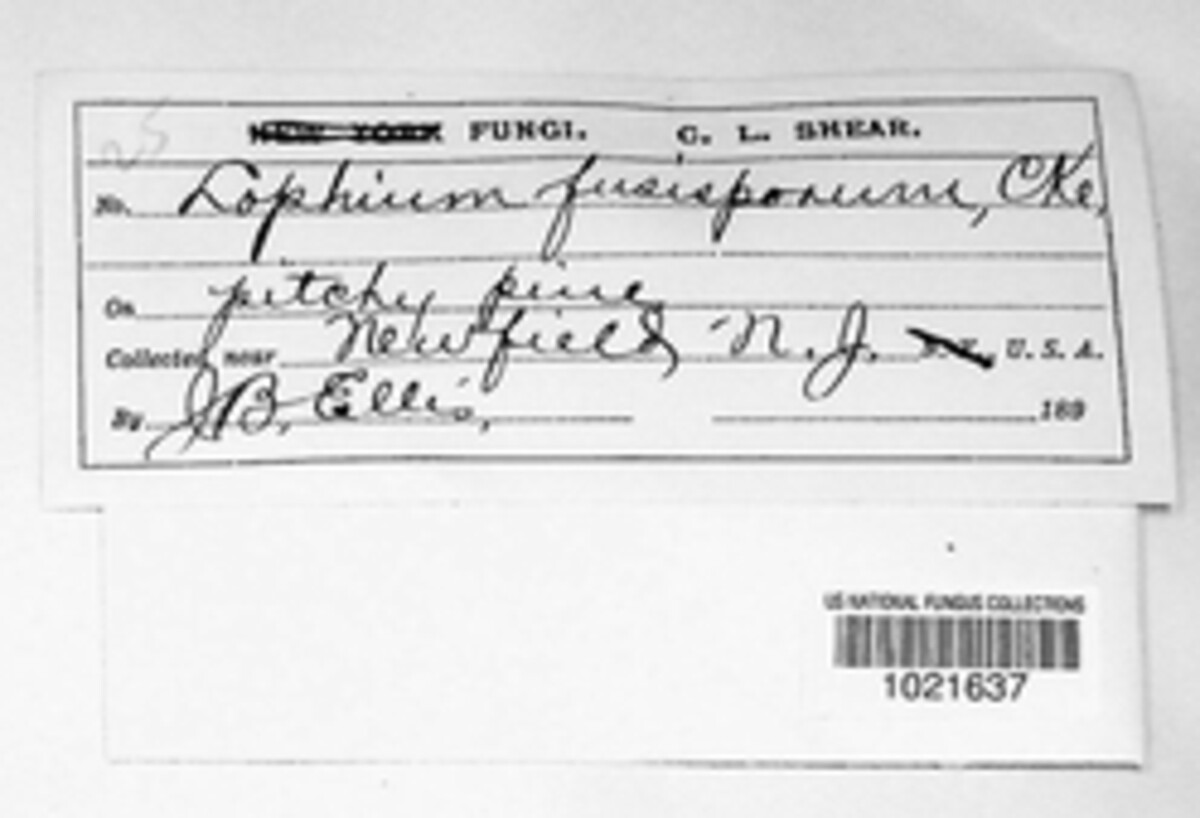 25
NEW YORK FUNGI. C. L. SHEAR.
No. Lophium fusisporum, CKe,
On pitchy pine
Collected near Newfield, N. J. N.Y., U. S. A.
By J B. Ellis, 189
US NATIONAL FUNGUS COLLECTIONS
1021637